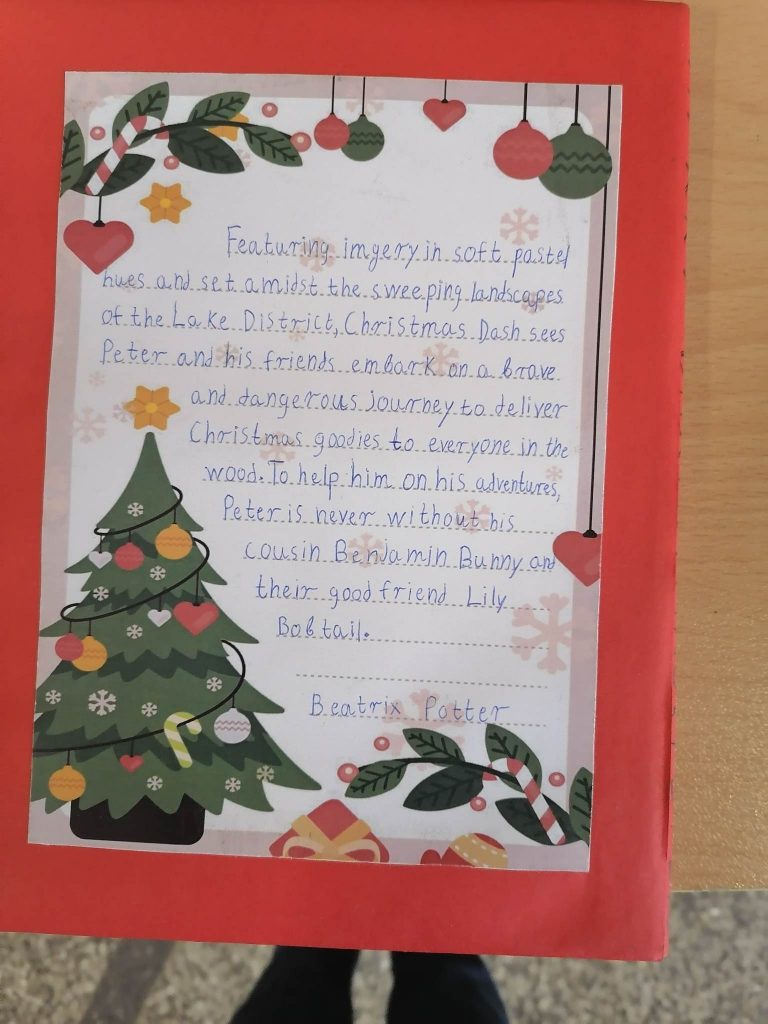 Featuring imgery in soft pastel
hues and set amidst the sweeping landscapes
of the Lake District, Christmas Dash sees
Peter and his friends embark on a brave
and dangerous journey to deliver
Christmas goodies to everyone in the
wood. To help him on his adventures,
Peter is never without his
cousin Benjamin Bunny and
their good friend Lily
Bobtail.
Beatrix Potter